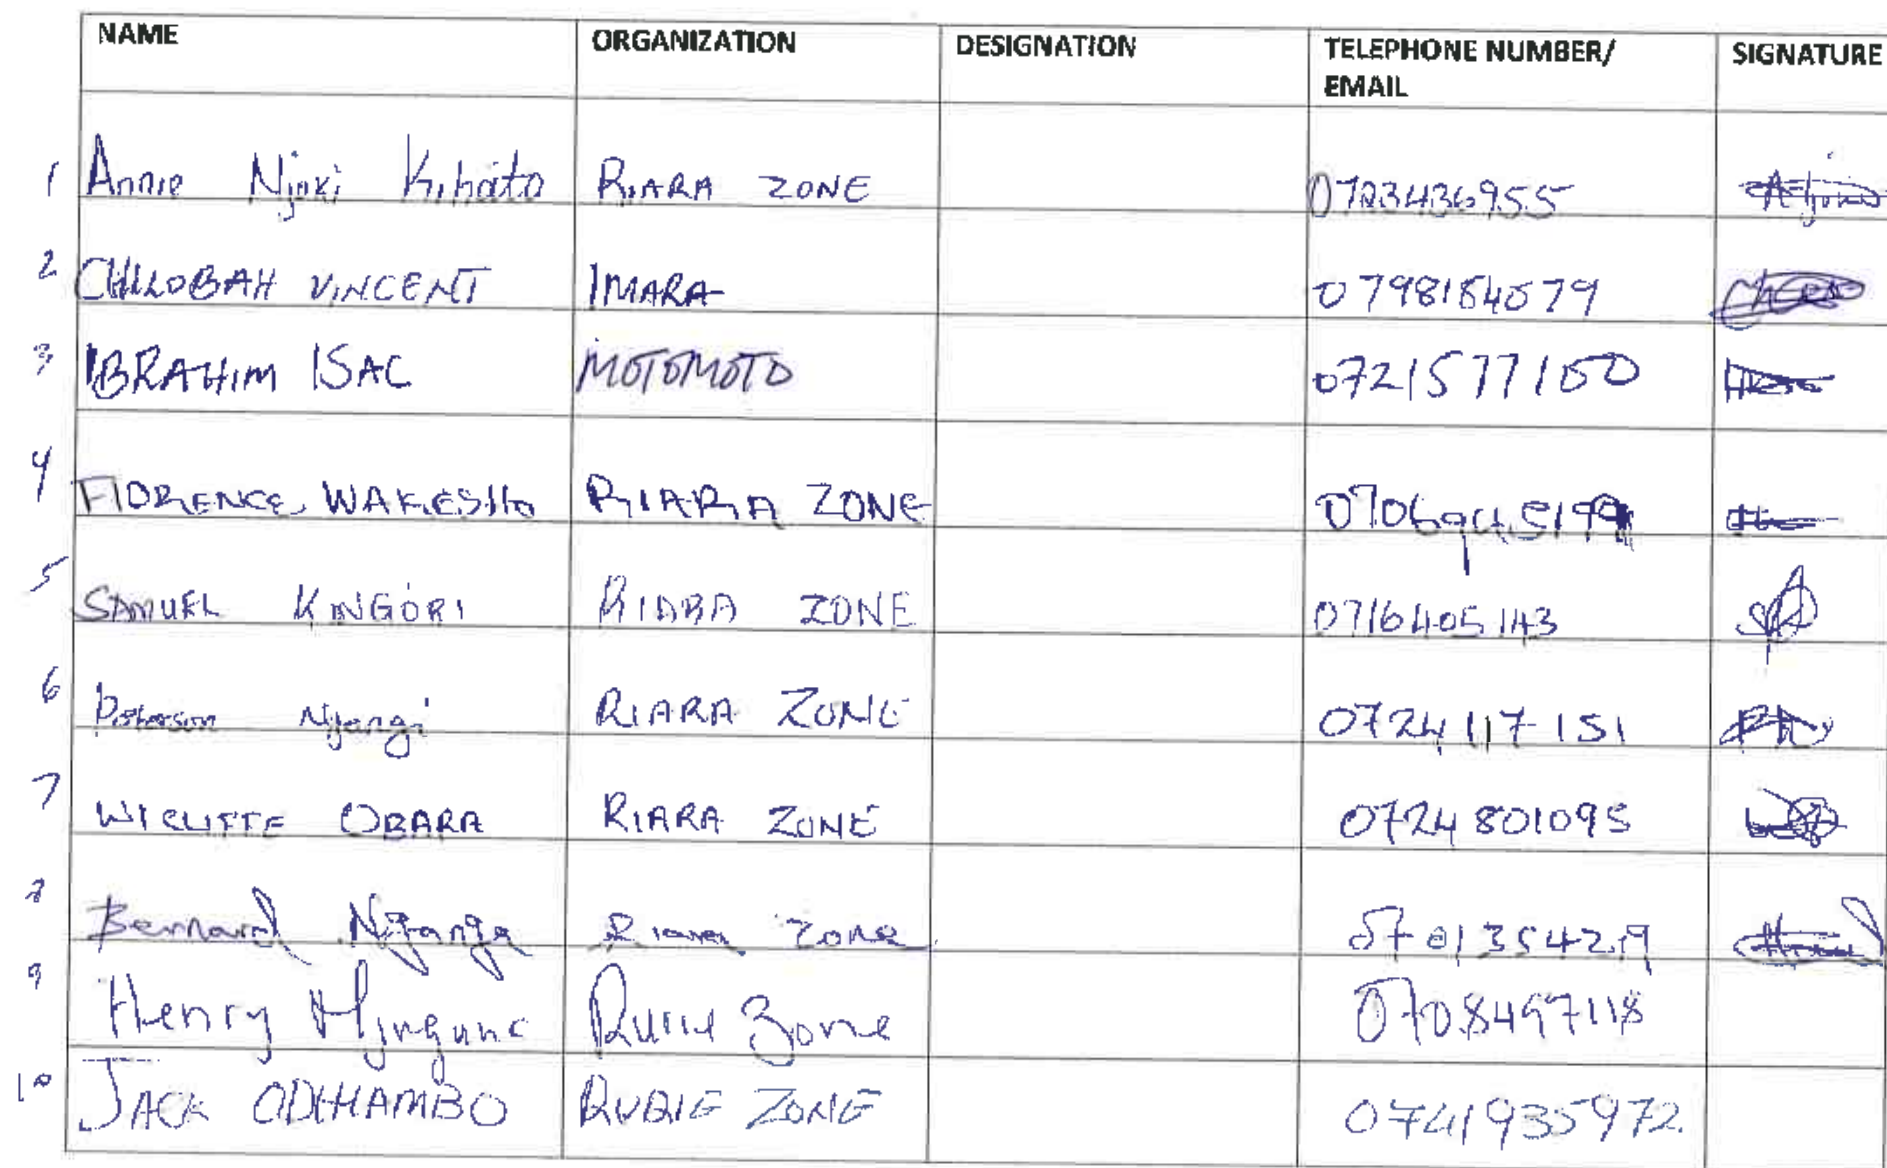 NAME ORGANIZATION DESIGNATION TELEPHONE NUMBER/ EMAIL SIGNATURE
1 Annie Njoki Kihato RIARA ZONE 0723436955
2 CHILOBAH VINCENT IMARA 0798184079
3 IBRAHIM ISAC MOTOMOTO 0721577100
4 FLORENCE WAKESHO RIARA ZONE
5 SAMUEL KINGORI RIARA ZONE 0716405143
6 Peterson Njangi RIARA ZONE 0724117151
7 WICLIFFE OBARA RIARA ZONE 0724801095
8 Bernard Njanga Riara Zone 0701354219
9 Henry Zone 0708497118
10 JACK ODHIAMBO RUBIE ZONE 0741935972